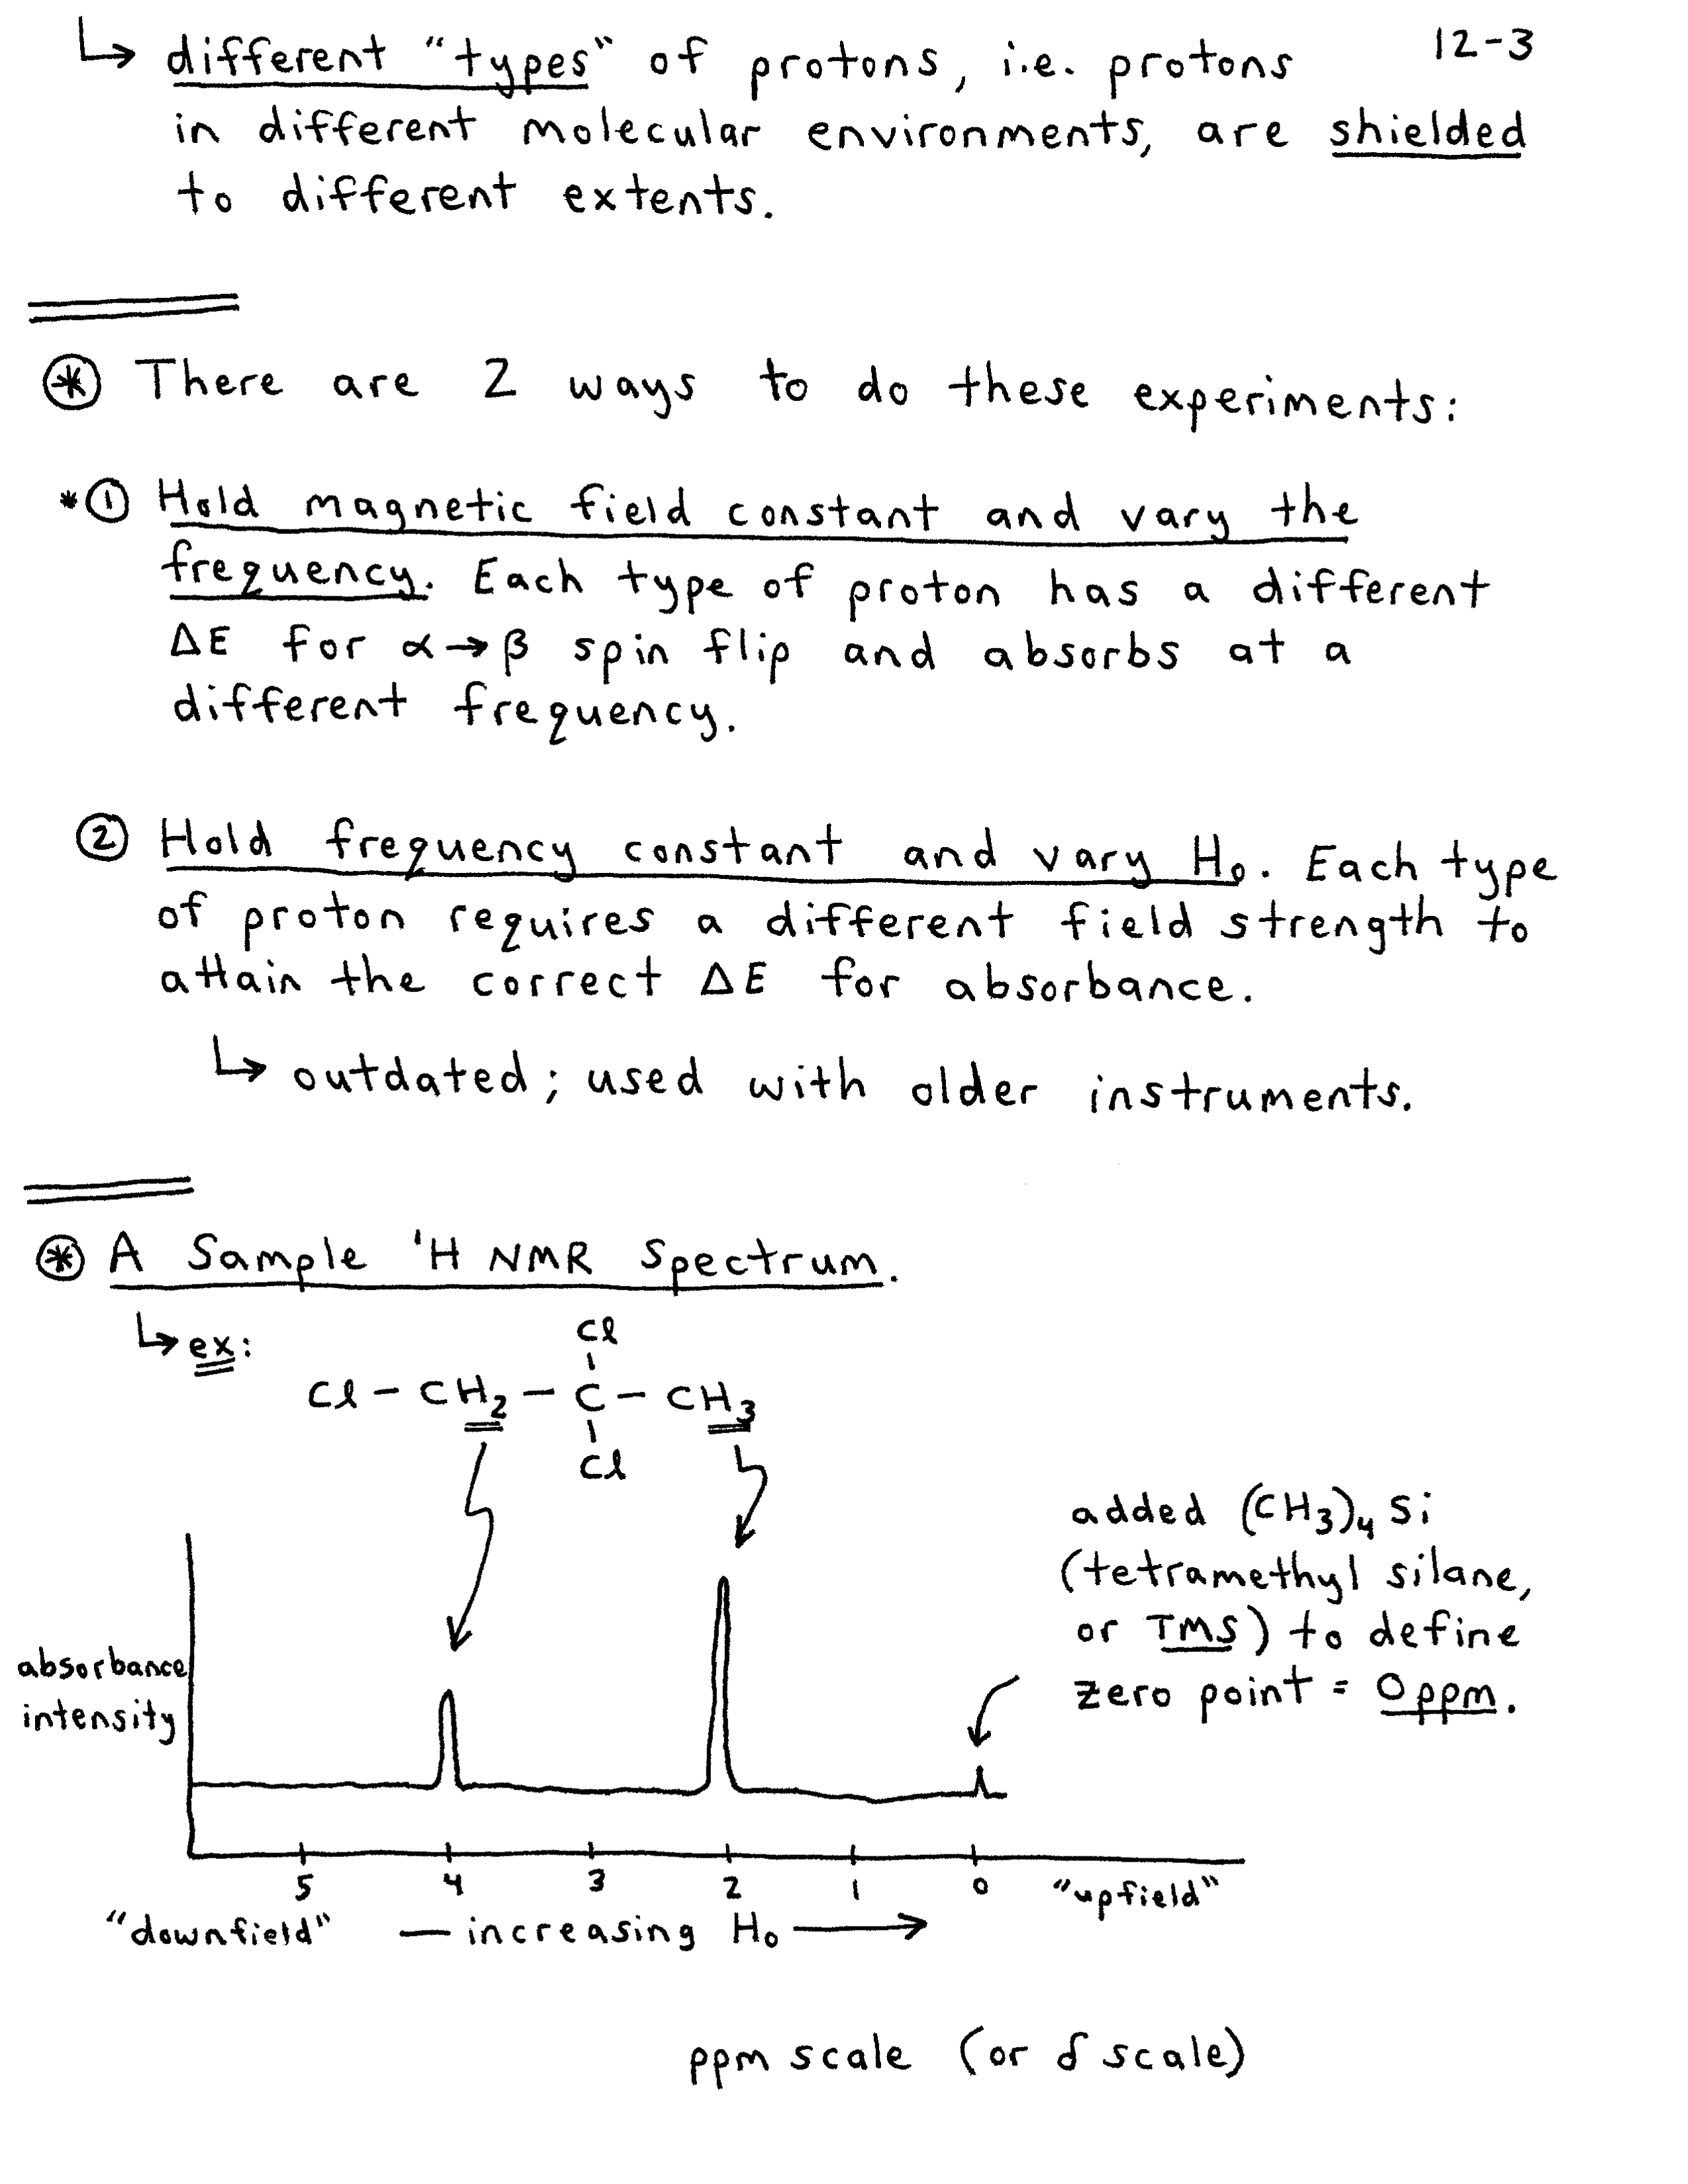 ↳ different "types" of protons, i.e. protons 12-3
in different molecular environments, are shielded
to different extents.
⊛ There are 2 ways to do these experiments:
*① Hold magnetic field constant and vary the
frequency. Each type of proton has a different
ΔE for α→β spin flip and absorbs at a
different frequency.
② Hold frequency constant and vary H₀. Each type
of proton requires a different field strength to
attain the correct ΔE for absorbance.
↳ outdated; used with older instruments.
⊛ A Sample ¹H NMR Spectrum.
↳ ex:
Cl
Cl - CH₂ - C - CH₃
Cl
added (CH₃)₄ Si
(tetramethyl silane,
or TMS) to define
zero point = 0 ppm.
absorbance
intensity
5 4 3 2 1 0 "upfield"
"downfield" — increasing H₀ →
ppm scale (or δ scale)